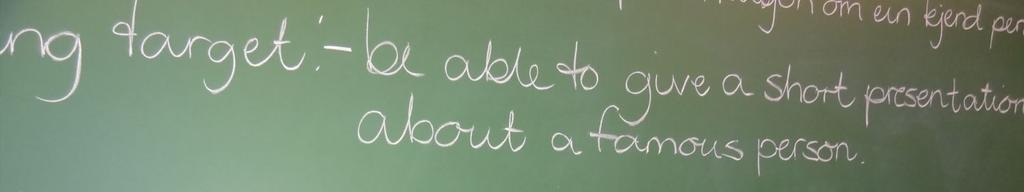 om ein kjend
ng target:- be able to give a short presentation
about a famous person.